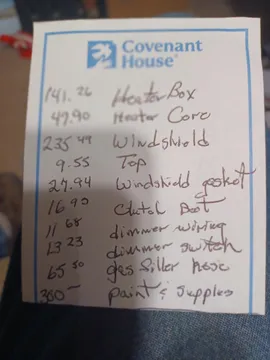 Covenant
House
141.26 Heater Box
47.90 Heater Core
235.49 Windshield
9.55 Top
27.94 Windshield gasket
16.90 Clutch Boot
11.68 dimmer wiring
13.23 dimmer switch
65.50 gas filler hose
300 — paint & supplies